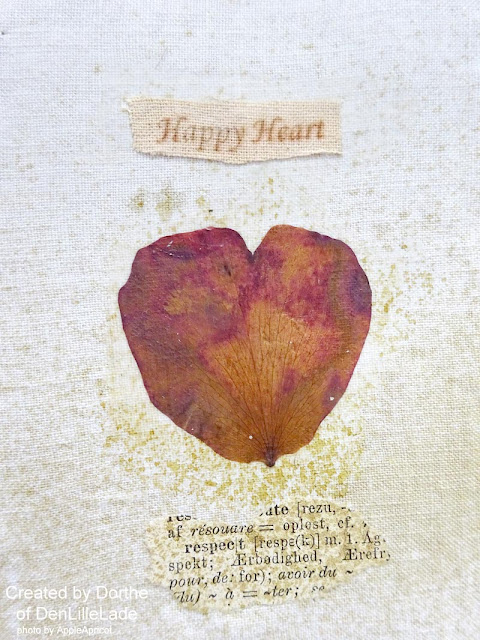 Happy Heart
[rezu,
af résouare = opløst, cf.
respec|t [respɛ(k)] m. 1. Ag-
spekt; Ærbødighed, Ærefr
pour, de: for); avoir du ~
~ à =
Created by Dorthe
of DenLilleLade
photo by AppleApricot